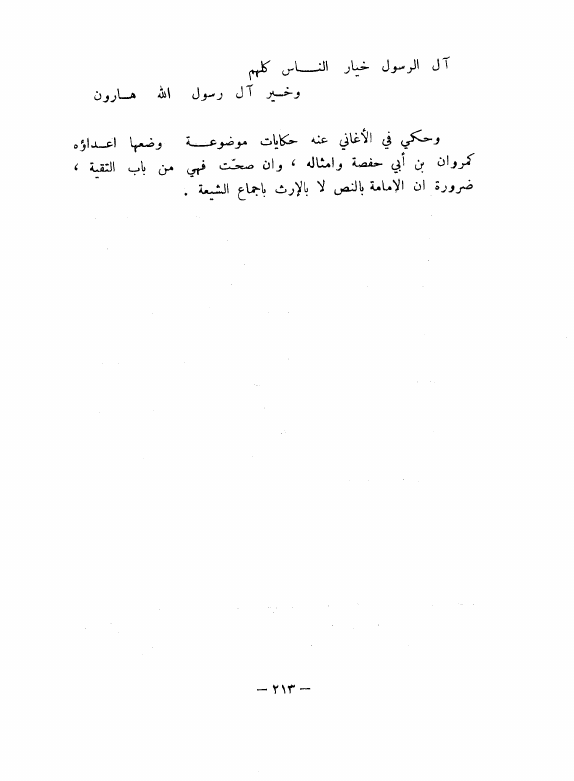 آل الرسول خيار النـــاس كلهم
وخـــير آل رسول الله هـارون
وحكي في الأغاني عنه حكايات موضوعـــة وضعها اعـداؤه
كمروان بن أبي حفصة وامثاله ، وان صحّت فهي من باب التقية ،
ضرورة ان الامامة بالنص لا بالإرث باجماع الشيعة .
— ٢١٣ —